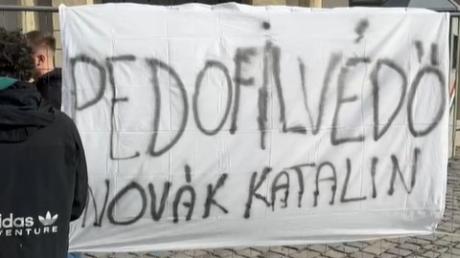 PEDOFILVÉDŐ
NOVÁK KATALIN
adidas
ADVENTURE